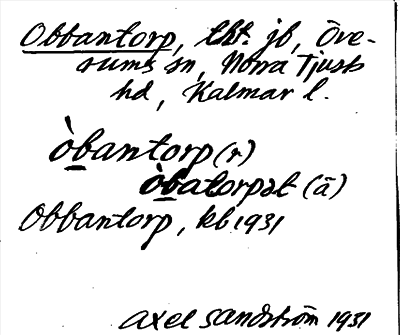 Obbantorp, tht. jb, Öve-
rums sn, Norra Tjusts
hd, Kalmar l.
òbantorp (r)
òbatorpət (ä)
Obbantorp, kb 1931
Axel Sandström 1931